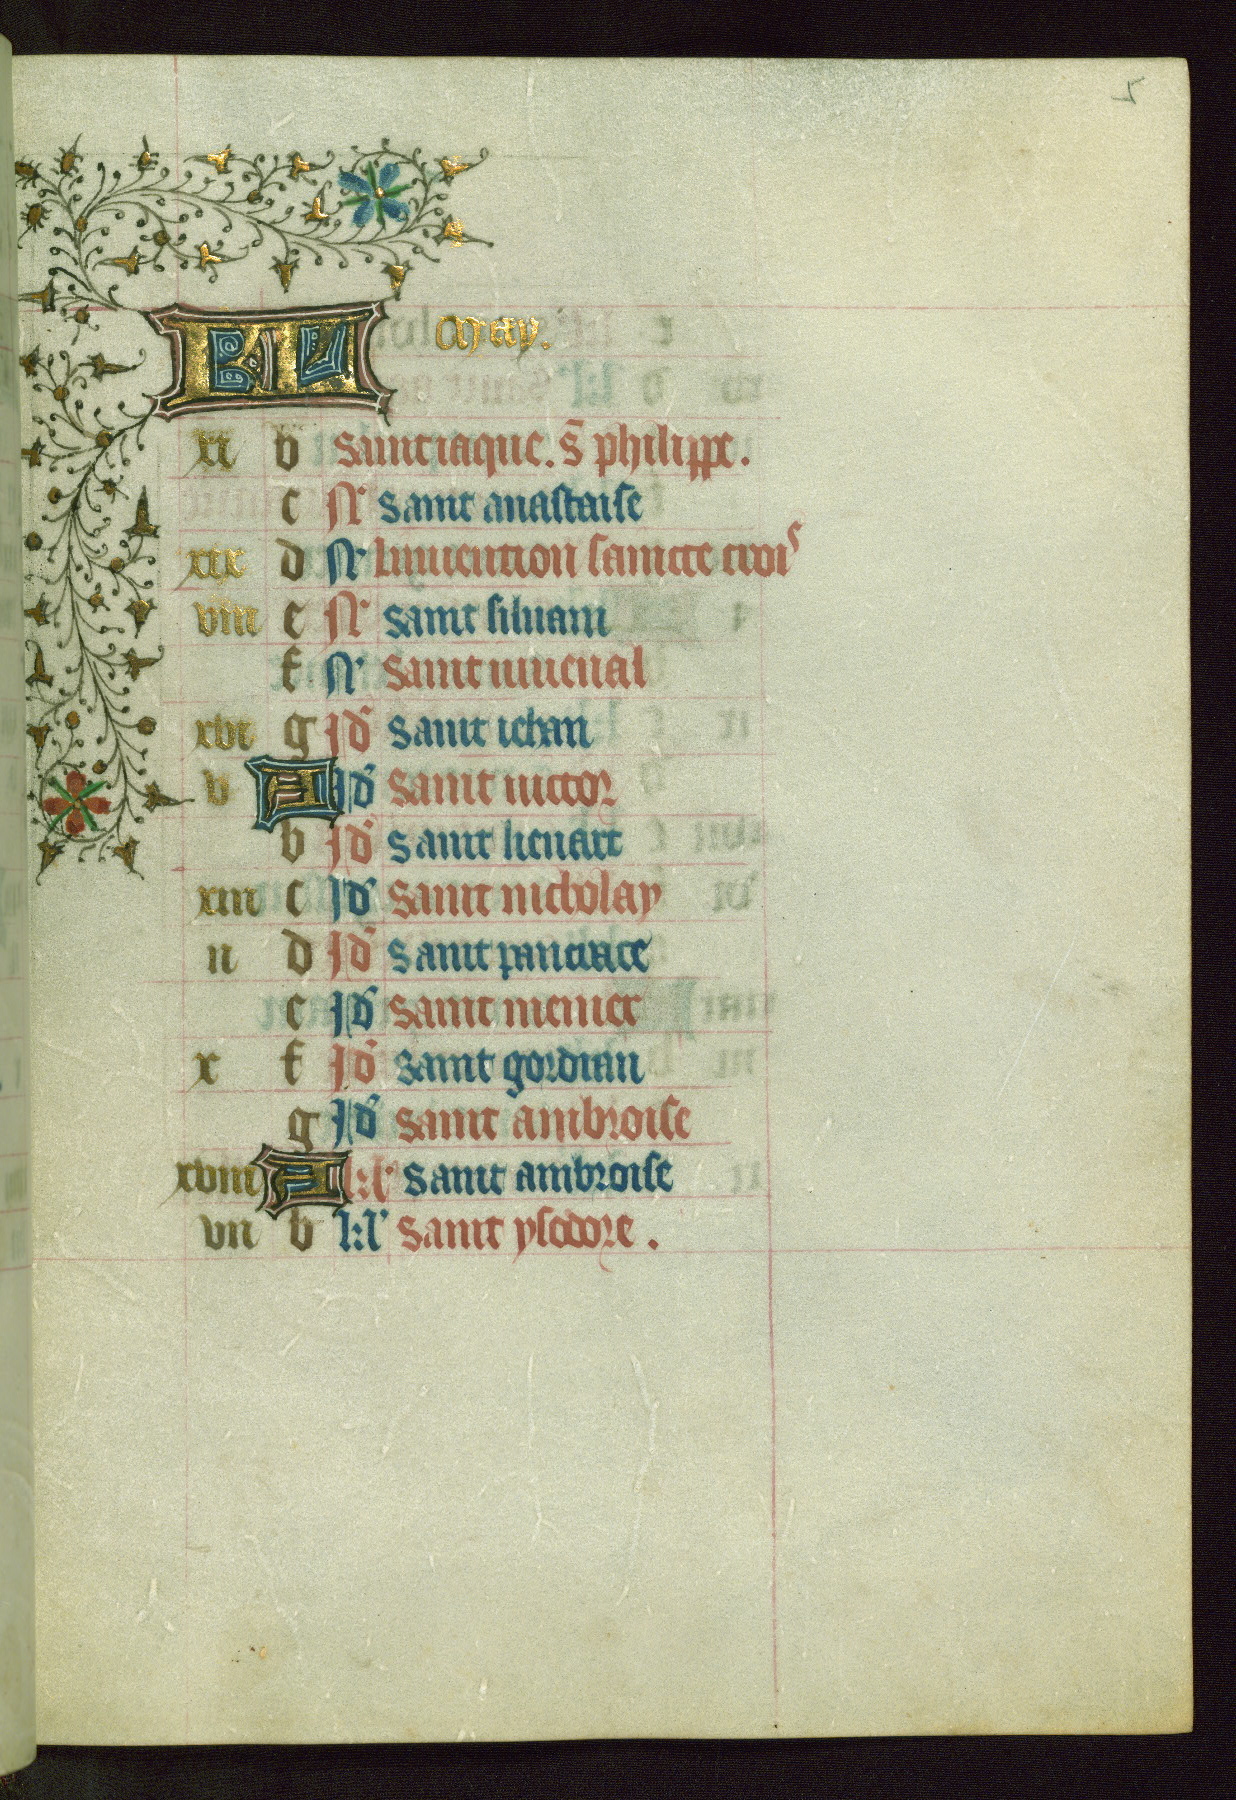 5
KL May.
xi b Saint iaque. s̄ philippe.
c N' Saint anastaise
xix d N' Linuention saincte crois
viii e N' Saint siluain
f N' Saint iuuenal
xvi g Id' Saint iehan
v A Id' Saint uictor
b Id' Saint lienart
xiii c Id' Saint nicholay
ii d Id' Saint pancrace
e Id' Saint
x f Id' Saint gordian
g Id' Saint ambroise
xviii A kl' Saint ambroise
vii b kl' Saint ysodore.